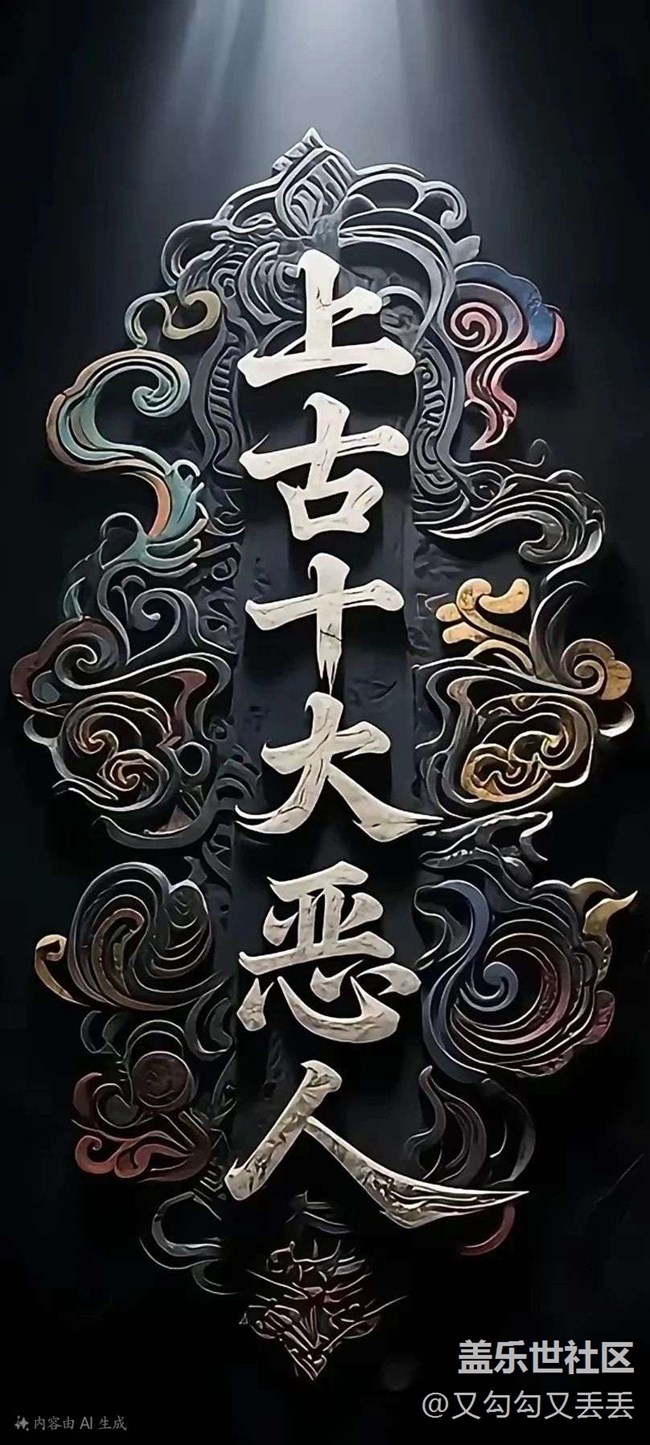 上古十大恶人
盖乐世社区
@又勾勾又丢丢
内容由 AI 生成